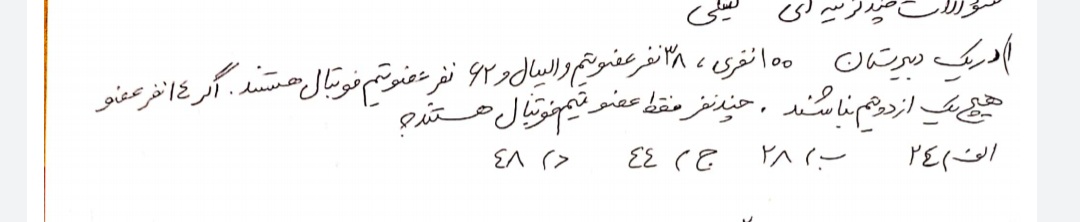 سوالات چند گزینه ای
۱) در یک دبیرستان ۱۰۰ نفری ، ۳۸ نفر عضو تیم والیبال و ۶۲ نفر عضو تیم فوتبال هستند . اگر ۱۴ نفر عضو
هیچ یک از دو تیم نباشند . چند نفر فقط عضو تیم فوتبال هستند ؟
الف) ۲۴ ب) ۲۸ ج) ۴۴ د) ۴۸